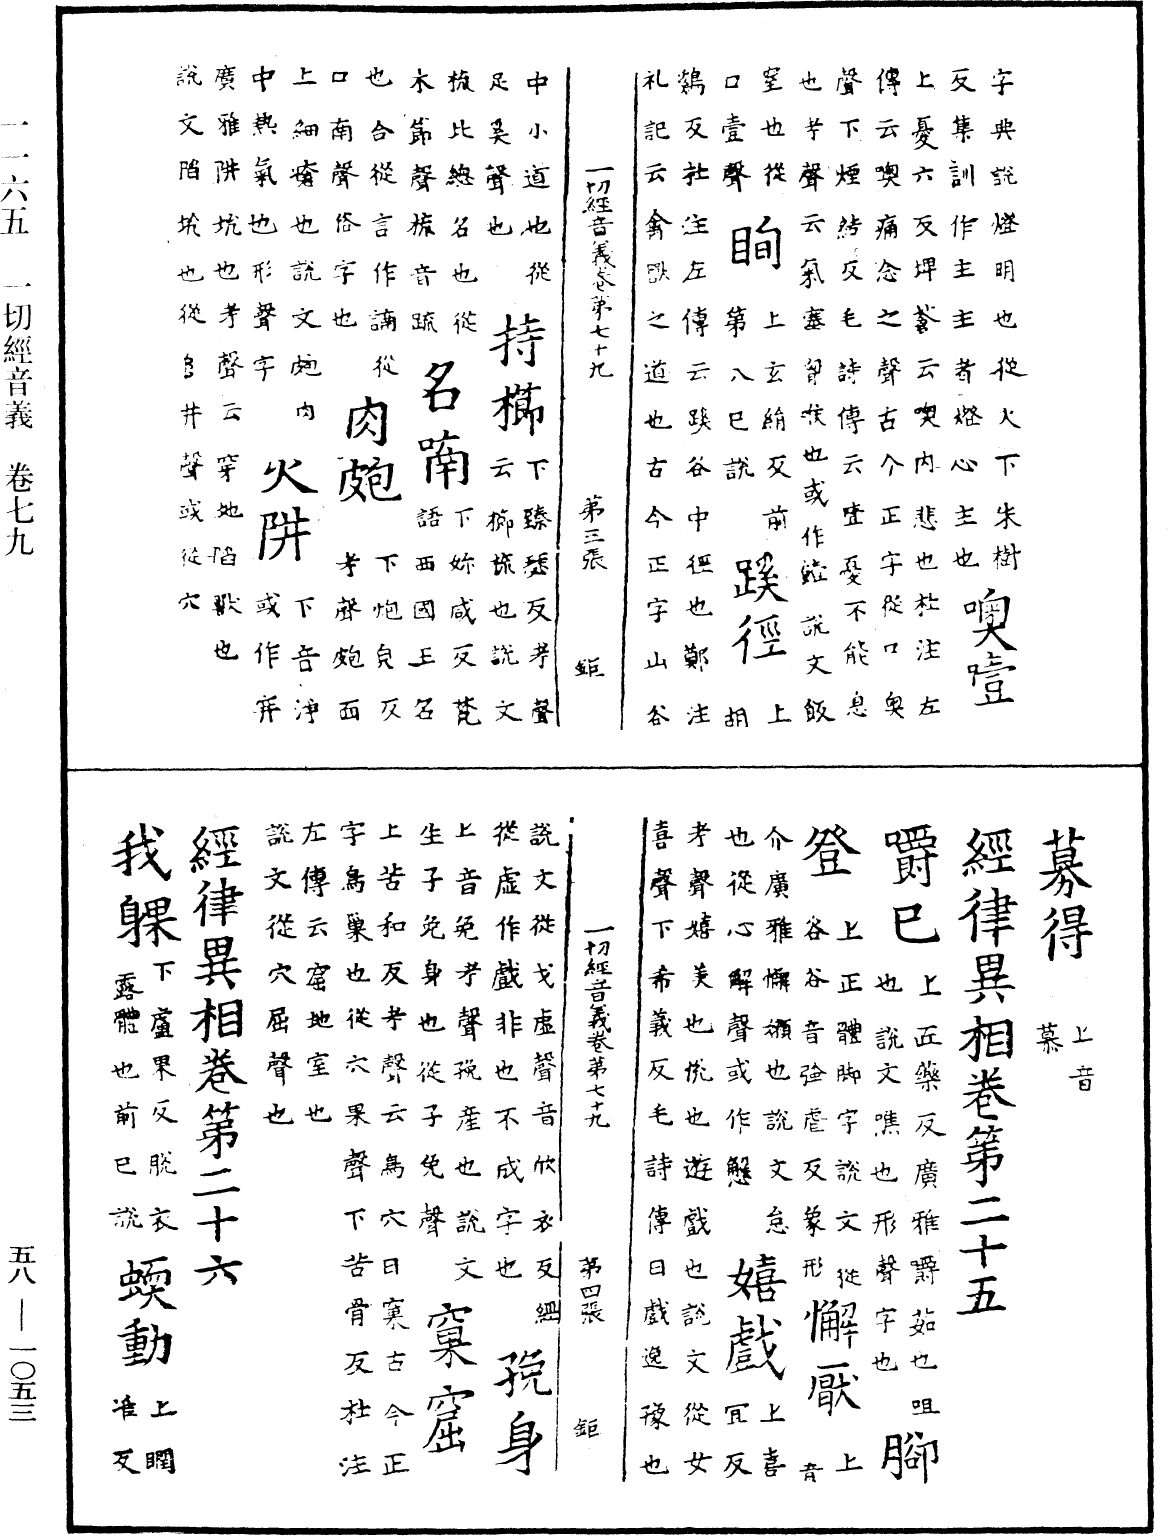 字典說燈明也從火下朱樹
反集訓作主主者燈心主也噢噎
上憂六反埤蒼云噢內悲也杜注左
傳云噢痛念之聲古今正字從口奧
聲下煙結反毛詩傳云噎憂不能息
也考聲云氣塞胷喉也或作𩜺說文飯
窒也從口壹聲眴上玄絹反前第八已說蹊徑上胡
鷄反杜注左傳云蹊谷中徑也鄭注
礼記云禽獸之道也古今正字山谷
一切經音義卷第七十九 第三張 鉅
中小道也從足奚聲也持櫛下臻瑟反考聲云櫛梳也說文
梳比總名也從木節聲梳音疏名喃下妳咸反梵語西國王名
也合從言作諵從口南聲俗字也肉皰下炮皃反考聲皰面
上細瘡也說文皰肉中熱氣也形聲字火阱下音淨或作穽
廣雅阱坑也考聲云穿地陷獸也
說文陷坑也從𨸏井聲或從穴
募得上音慕
經律異相卷第二十五
嚼已上匠藥反廣雅嚼茹也咀也說文噍也形聲字也腳
登上正體脚字說文從𧮫𧮫音強虐反象形懈厭上音
介廣雅懈嬾也說文怠也從心解聲或作懈嬉戲上喜冝反
考聲嬉美也悅也遊戲也說文從女
喜聲下希義反毛詩傳曰戲逸豫也
一切經音義卷第七十九 第四張 鉅
說文從戈䖒聲音欣衣反經
從虛作戲非也不成字也㝃身
上音免考聲㝃産也說文
生子免身也從子免聲窠窟
上苦和反考聲云鳥穴曰窠古今正
字鳥巢也從穴果聲下苦骨反杜注
左傳云窟地室也
說文從穴屈聲也
經律異相卷第二十六
我躶下盧果反脫衣露體也前已說蝡動上閏准反
一一六五 一切經音義 卷七九
五八 — 一〇五三